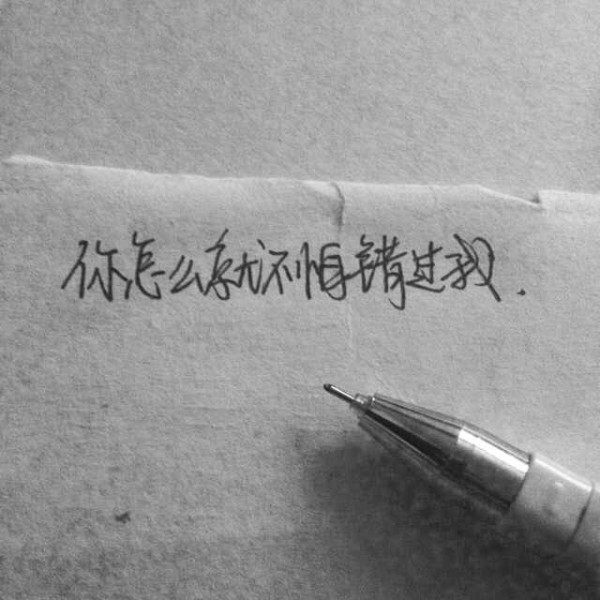 你怎么就不怕错过我.